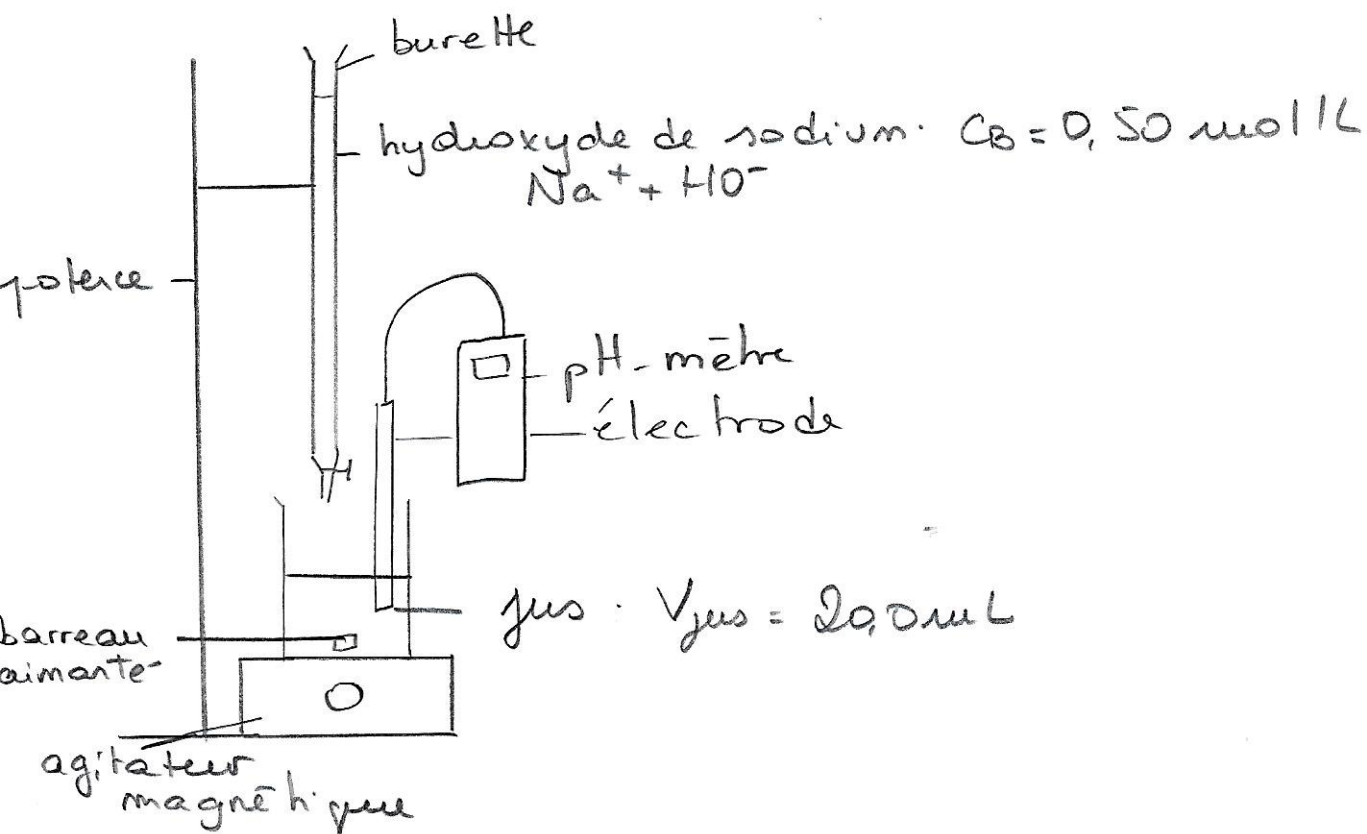 burette
hydroxyde de sodium. CB = 0,50 mol/L
Na+ + HO-
potence
pH-mètre
électrode
jus. Vjus = 20,0 mL
barreau
aimanté
agitateur
magnétique